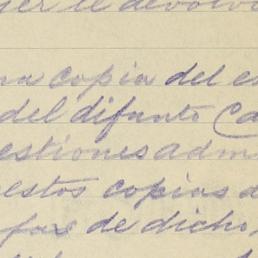 le devolv
na copia del e
del difunto Ca
estiones adm
estos copias d
de dicho,